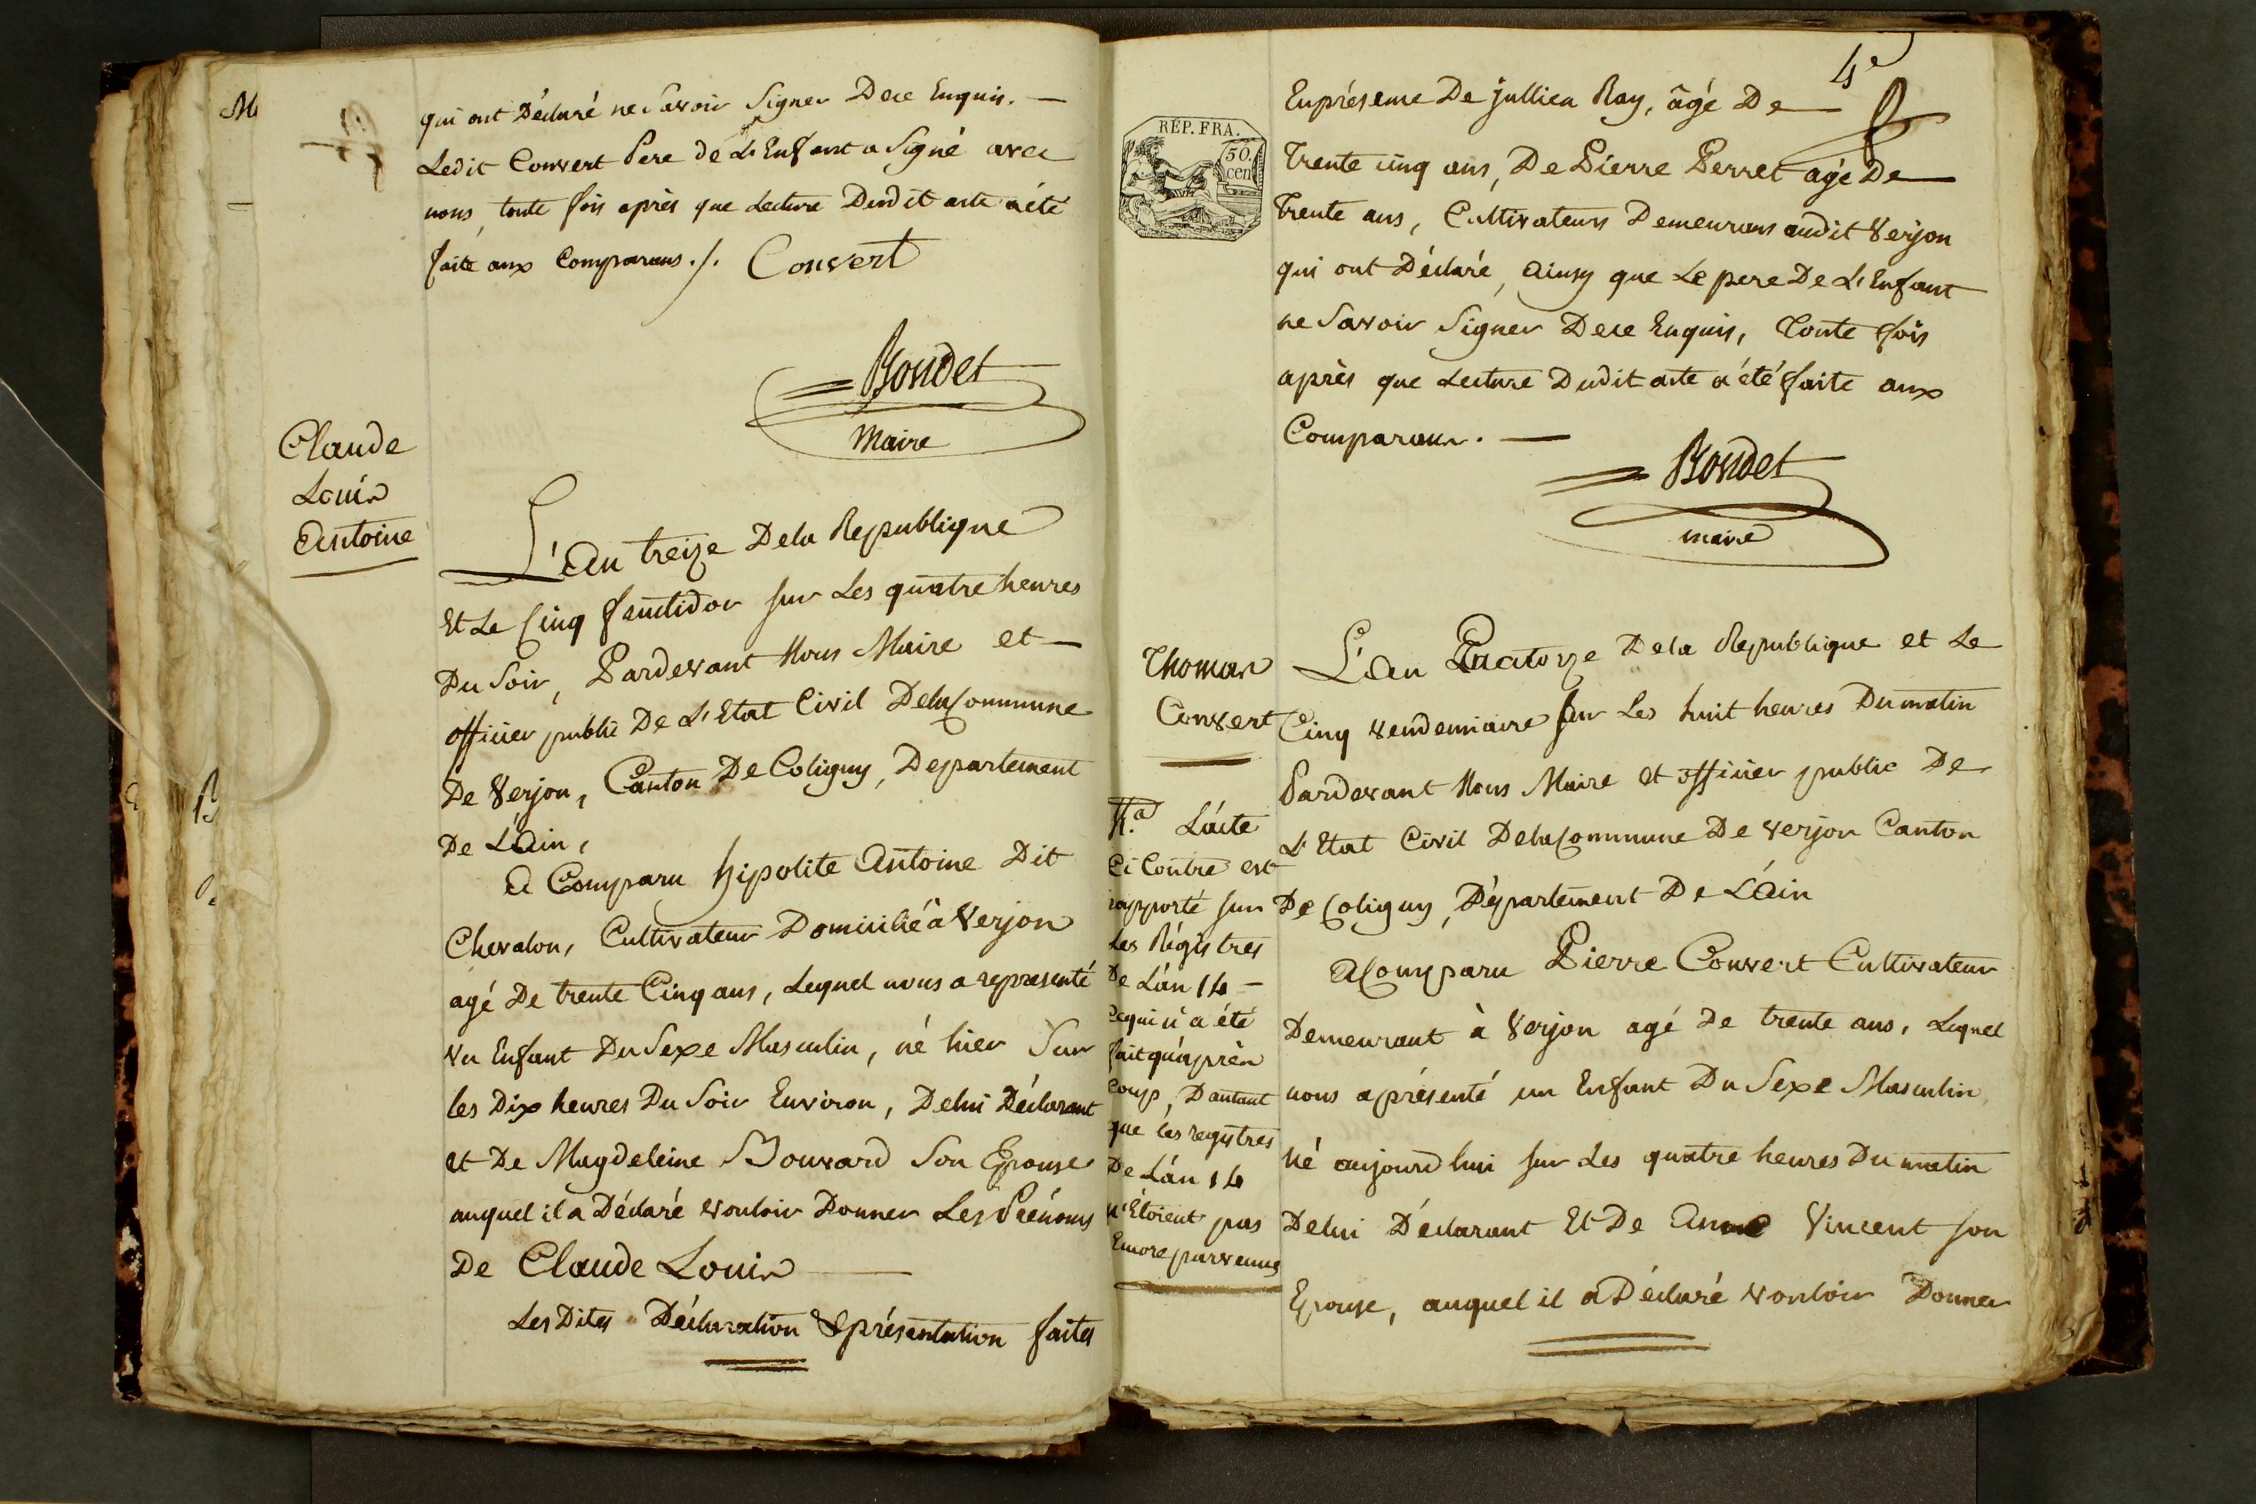 qui ont Déclaré ne Savoir Signer Dece Enquis. —
Ledit Convert Pere de L'Enfant a Signé avec
nous, toute fois après que Lecture Dudit acte a été
faite aux Comparans ./. Convert
Bondet
Maire
Claude
Louis
Antoine
L'an treize Dela Republique
Et Le Cinq fructidor sur Les quatre heures
Du Soir, Pardevant Nous Maire et —
officier public De L'Etat Civil DelaCommune
De Verjon, Canton De Coligny, Departement
De L'Ain,
A Comparu hipolite Antoine Dit
Chevalon, Cultivateur Domicilié à Verjon
agé De trente Cinq ans, Lequel nous a representé
un Enfant Du Sexe Masculin, né hier Sur
les Dix heures Du Soir Environ, Delui Déclarant
et De Magdeleine Bouvard Son Epouse
auquel il a Déclaré vouloir Donner Les Prénoms
De Claude Louis —
Les Dites Déclaration & présentation faites
4e
REP. FRA.
50.
cen
Enprésence De jullien Ray, âgé De —
Trente cinq ans, De Pierre Perret agé De —
Trente ans, Cultivateurs Demeurans audit Verjon
qui ont Déclaré, ainsy que Le pere De L'Enfant
ne Savoir Signer Dece Enquis, Toute fois
après que Lecture Dudit acte a été faite aux
Comparans. —
Bondet
maire
Thomas
Convert
L'an Quatorze Dela Republique et Le
Cinq vendemiaire sur Les huit heures Du matin
Pardevant Nous Maire et officier public De
L'Etat Civil DelaCommune De Verjon Canton
De Coligny, Département De L'Ain
AComparu Pierre Convert Cultivateur
Demeurant à Verjon agé De trente ans, Lequel
nous a présenté un Enfant Du Sexe Masculin
né aujourd'hui sur Les quatre heures Du matin
Delui Déclarant Et De Anne Vincent son
Epouse, auquel il a Déclaré vouloir Donner
Na L'acte
Ci Contre est
rapporté sur
Les Régistres
De L'an 14 —
Ce qui n'a été
fait qu'après
Coup, D'autant
que les registres
De L'an 14
n'Etoient pas
Encore parvenus